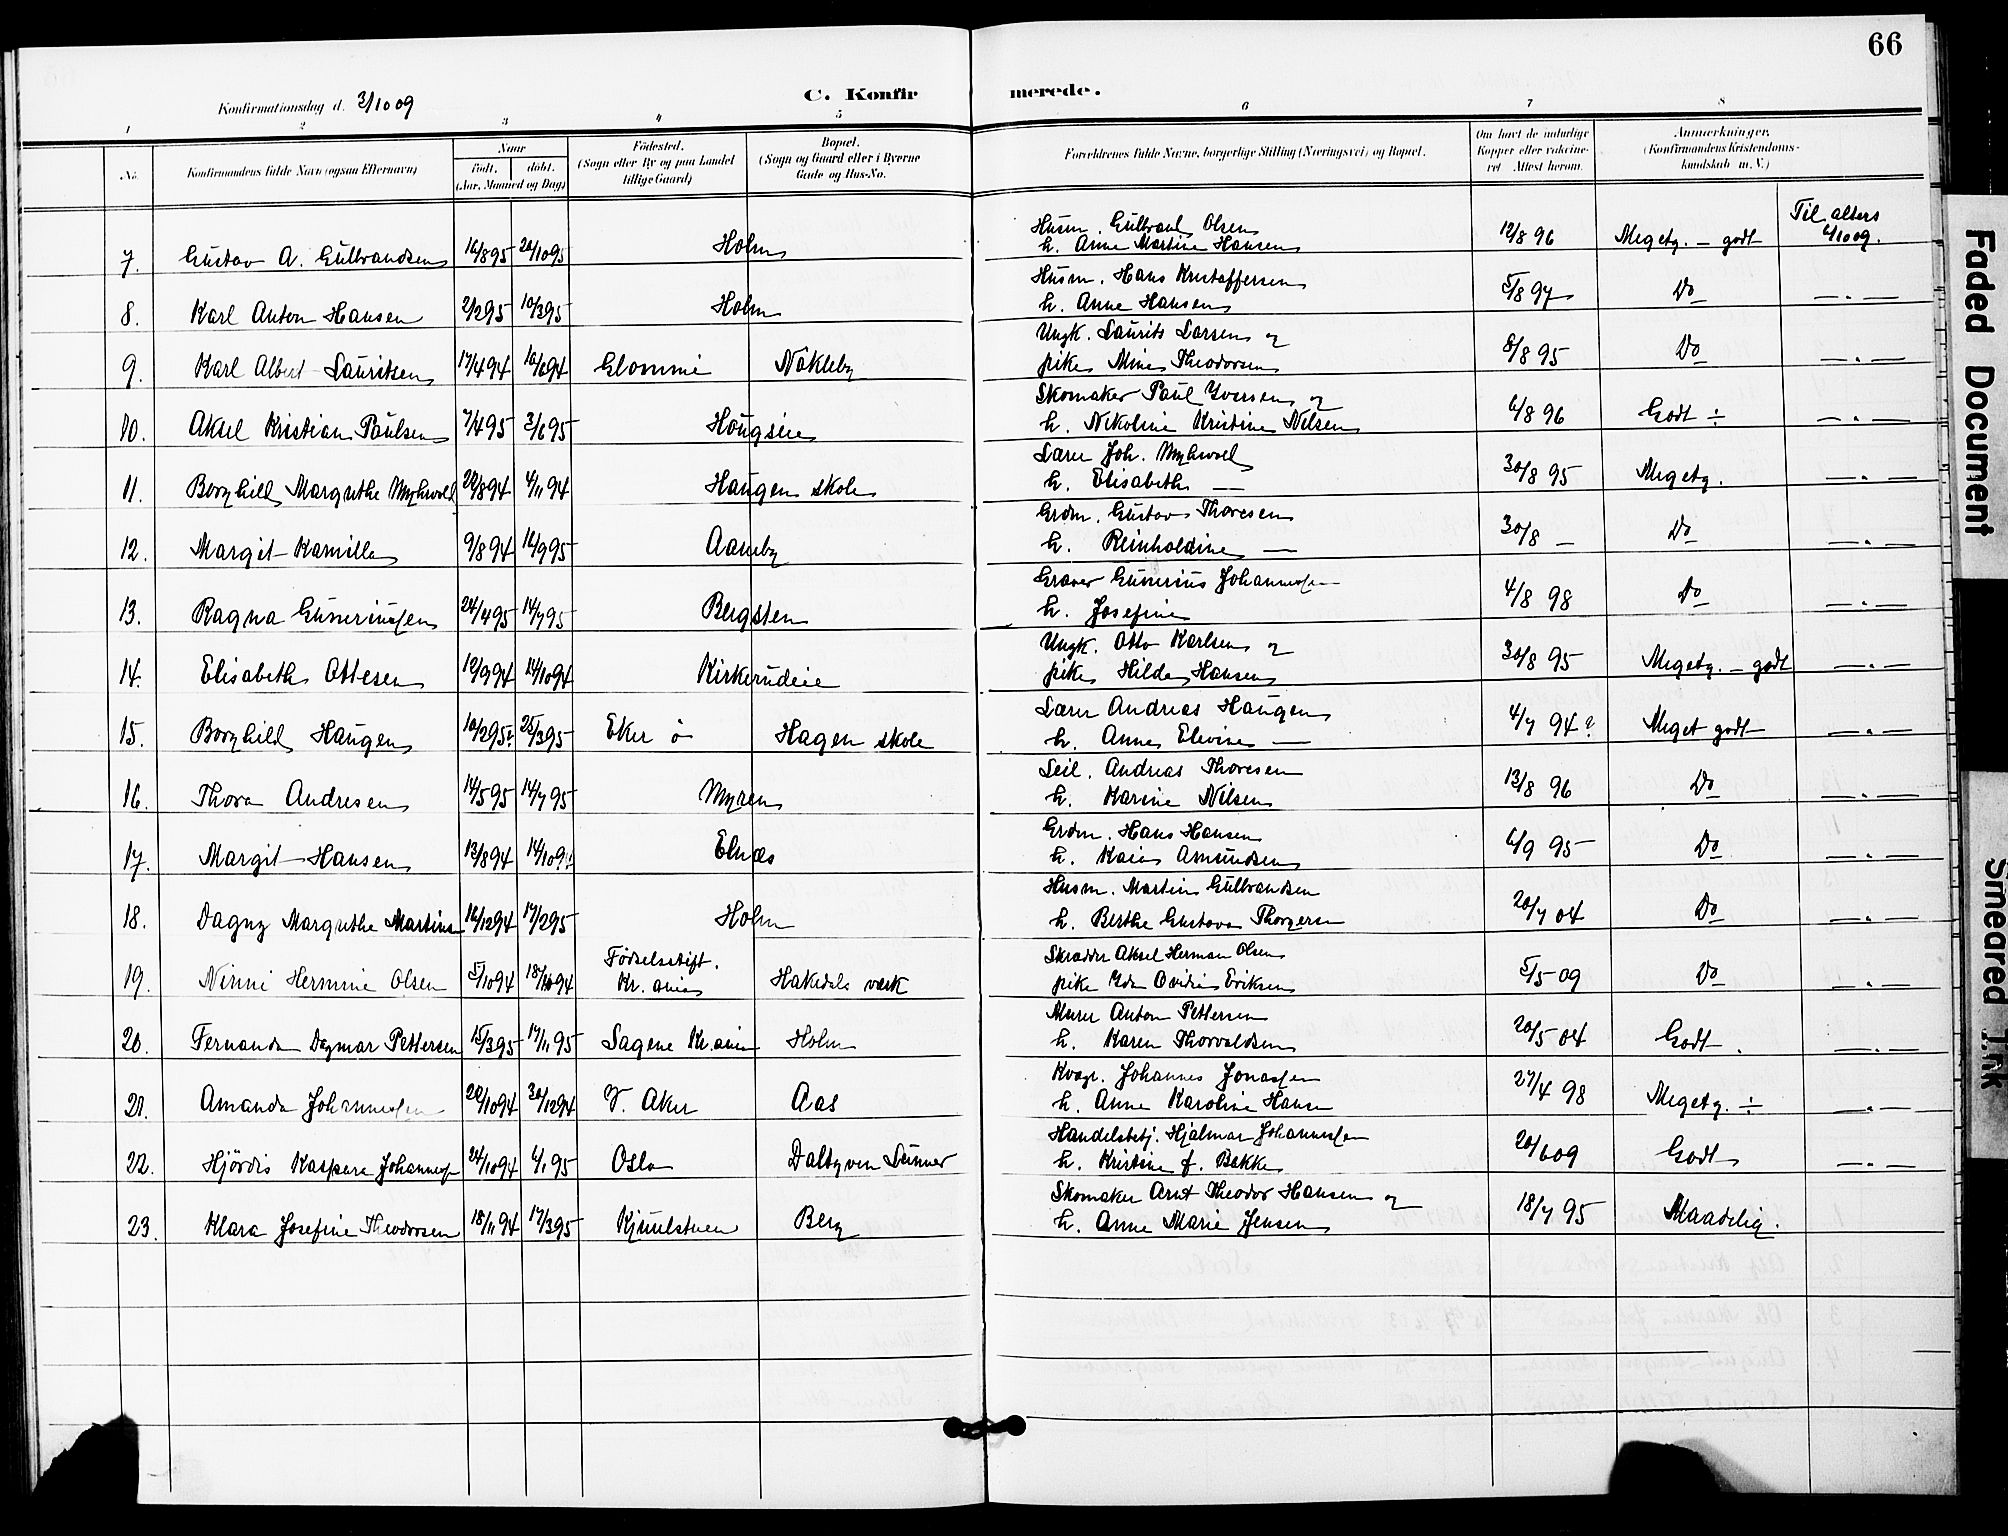 66
Konfirmationsdag d. 3/10 09
C. Konfirmerede.
1 2 3 4 5 6 7 8
No.
Konfirmandens fulde Navn (ogsaa Efternavn)
Naar
født. døbt.
(Aar, Maaned og Dag)
Fødested.
(Sogn eller By og paa Landet
tillige Gaard)
Bopæl.
(Sogn og Gaard eller i Byerne
Gade og Hus-No.
Forældrenes fulde Navne, borgerlige Stilling (Næringsvei) og Bopæl.
Om havt de naturlige
Kopper eller vaccine-
ret Attest herom.
Anmærkninger.
(Konfirmandens Kristendoms-
kundskab m. V.)
Til alters
4/10 09.
7. Gustav A. Gulbrandsen 16/8 95 20/10 95 Holm Husm. Gulbrand Olsen
h. Anne Martine Hansen 12/8 96 Megetg. - godt
8. Karl Anton Hansen 2/2 95 10/3 95 Holm Husm. Hans Kristoffersen
h. Anne Hansen 5/8 97 Do — " —
9. Karl Albert Lauritsen 17/4 94 10/6 94 Glommi Nökleby Ungk. Laurits Larsen og
pike Mina Theodorsen 8/8 95 Do — " —
10. Aksel Kristian Paulsen 7/4 95 3/6 95 Haugseie Skomaker Paul Iversen og
h. Nikoline Kristine Nilsen 6/8 96 Godt ÷ — " —
11. Borghild Margrethe Myhrvold 29/8 94 4/11 94 Haugen skole Lærer Joh. Myhrvold
h. Elisabeth — 30/8 95 Megetg. — " —
12. Margit Kamilla 9/8 94 16/9 95 Aaneby Grdm. Gustav Thoresen
h. Reinholdine — 30/8 — Do — " —
13. Ragna Gunerius­sen 24/4 95 14/7 95 Bergsten Graver Gunerius Johannessen
h. Josefine 4/8 98 Do — " —
14. Elisabeth Ottesen 12/9 94 14/10 94 Kirkerudeie Ungk. Otto Karlsen og
pike Hilda Hansen 30/8 95 Megetg. - godt — " —
15. Borghild Haugen 10/2 95? 25/3 95 Eker ö Hagen skole Lærer Andreas Haugen
h. Anne Elevine — 4/7 94? Meget godt — " —
16. Thora Andresen 14/5 95 14/7 95 Myren Leil. Andreas Thoresen
h. Karine Nilsen 13/8 96 Do — " —
17. Margit Hansen 13/8 94 14/10 9? Elnæs Grdm. Hans Hansen
h. Kaia Amundsen 6/9 95 Do — " —
18. Dagny Margrethe Martinsen 16/12 94 17/2 95 Holm Husm. Martin Gulbrandsen
h. Berthe Gustava Thorgersen 20/7 04 Do — " —
19. Ninni Hermine Olsen 5/10 94 18/10 94 Födselsstift.
Kr.ania Hakedals verk Skrædder Aksel Herman Olsen
pike Ida Ovidia Eriksen 5/5 09 Do — " —
20. Fernanda Dagmar Pettersen 15/3 95 17/11 95 Sagene Kr.ania Holm Murer Anton Pettersen
h. Karen Thorvaldsen 20/5 04 Godt. — " —
21. Amanda Johannessen 20/10 94 30/12 94 V. Aker Aas Kvægr. Johannes Jonassen
h. Anne Karoline Hansen 27/4 98 Megetg. ÷ — " —
22. Hjördis Kaspara Johannessen 24/10 94 6/1 95 Oslo Dalbyven Sunner Handelsbetj. Hjalmar Johannessen
h. Kristine f. Bakke 20/6 09 Godt — " —
23. Klara Josefine Theodorsen 18/11 94 17/3 95 Kjuulstuen Berg Skomaker Arnt Theodor Hansen og
h. Anne Marie Jensen 18/7 95 Maadelig.
Faded Document
Smeared Ink